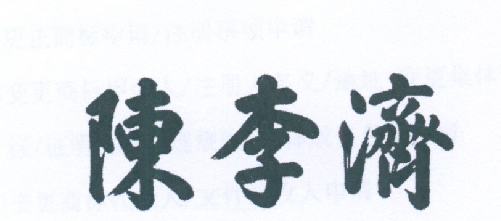 陳李濟